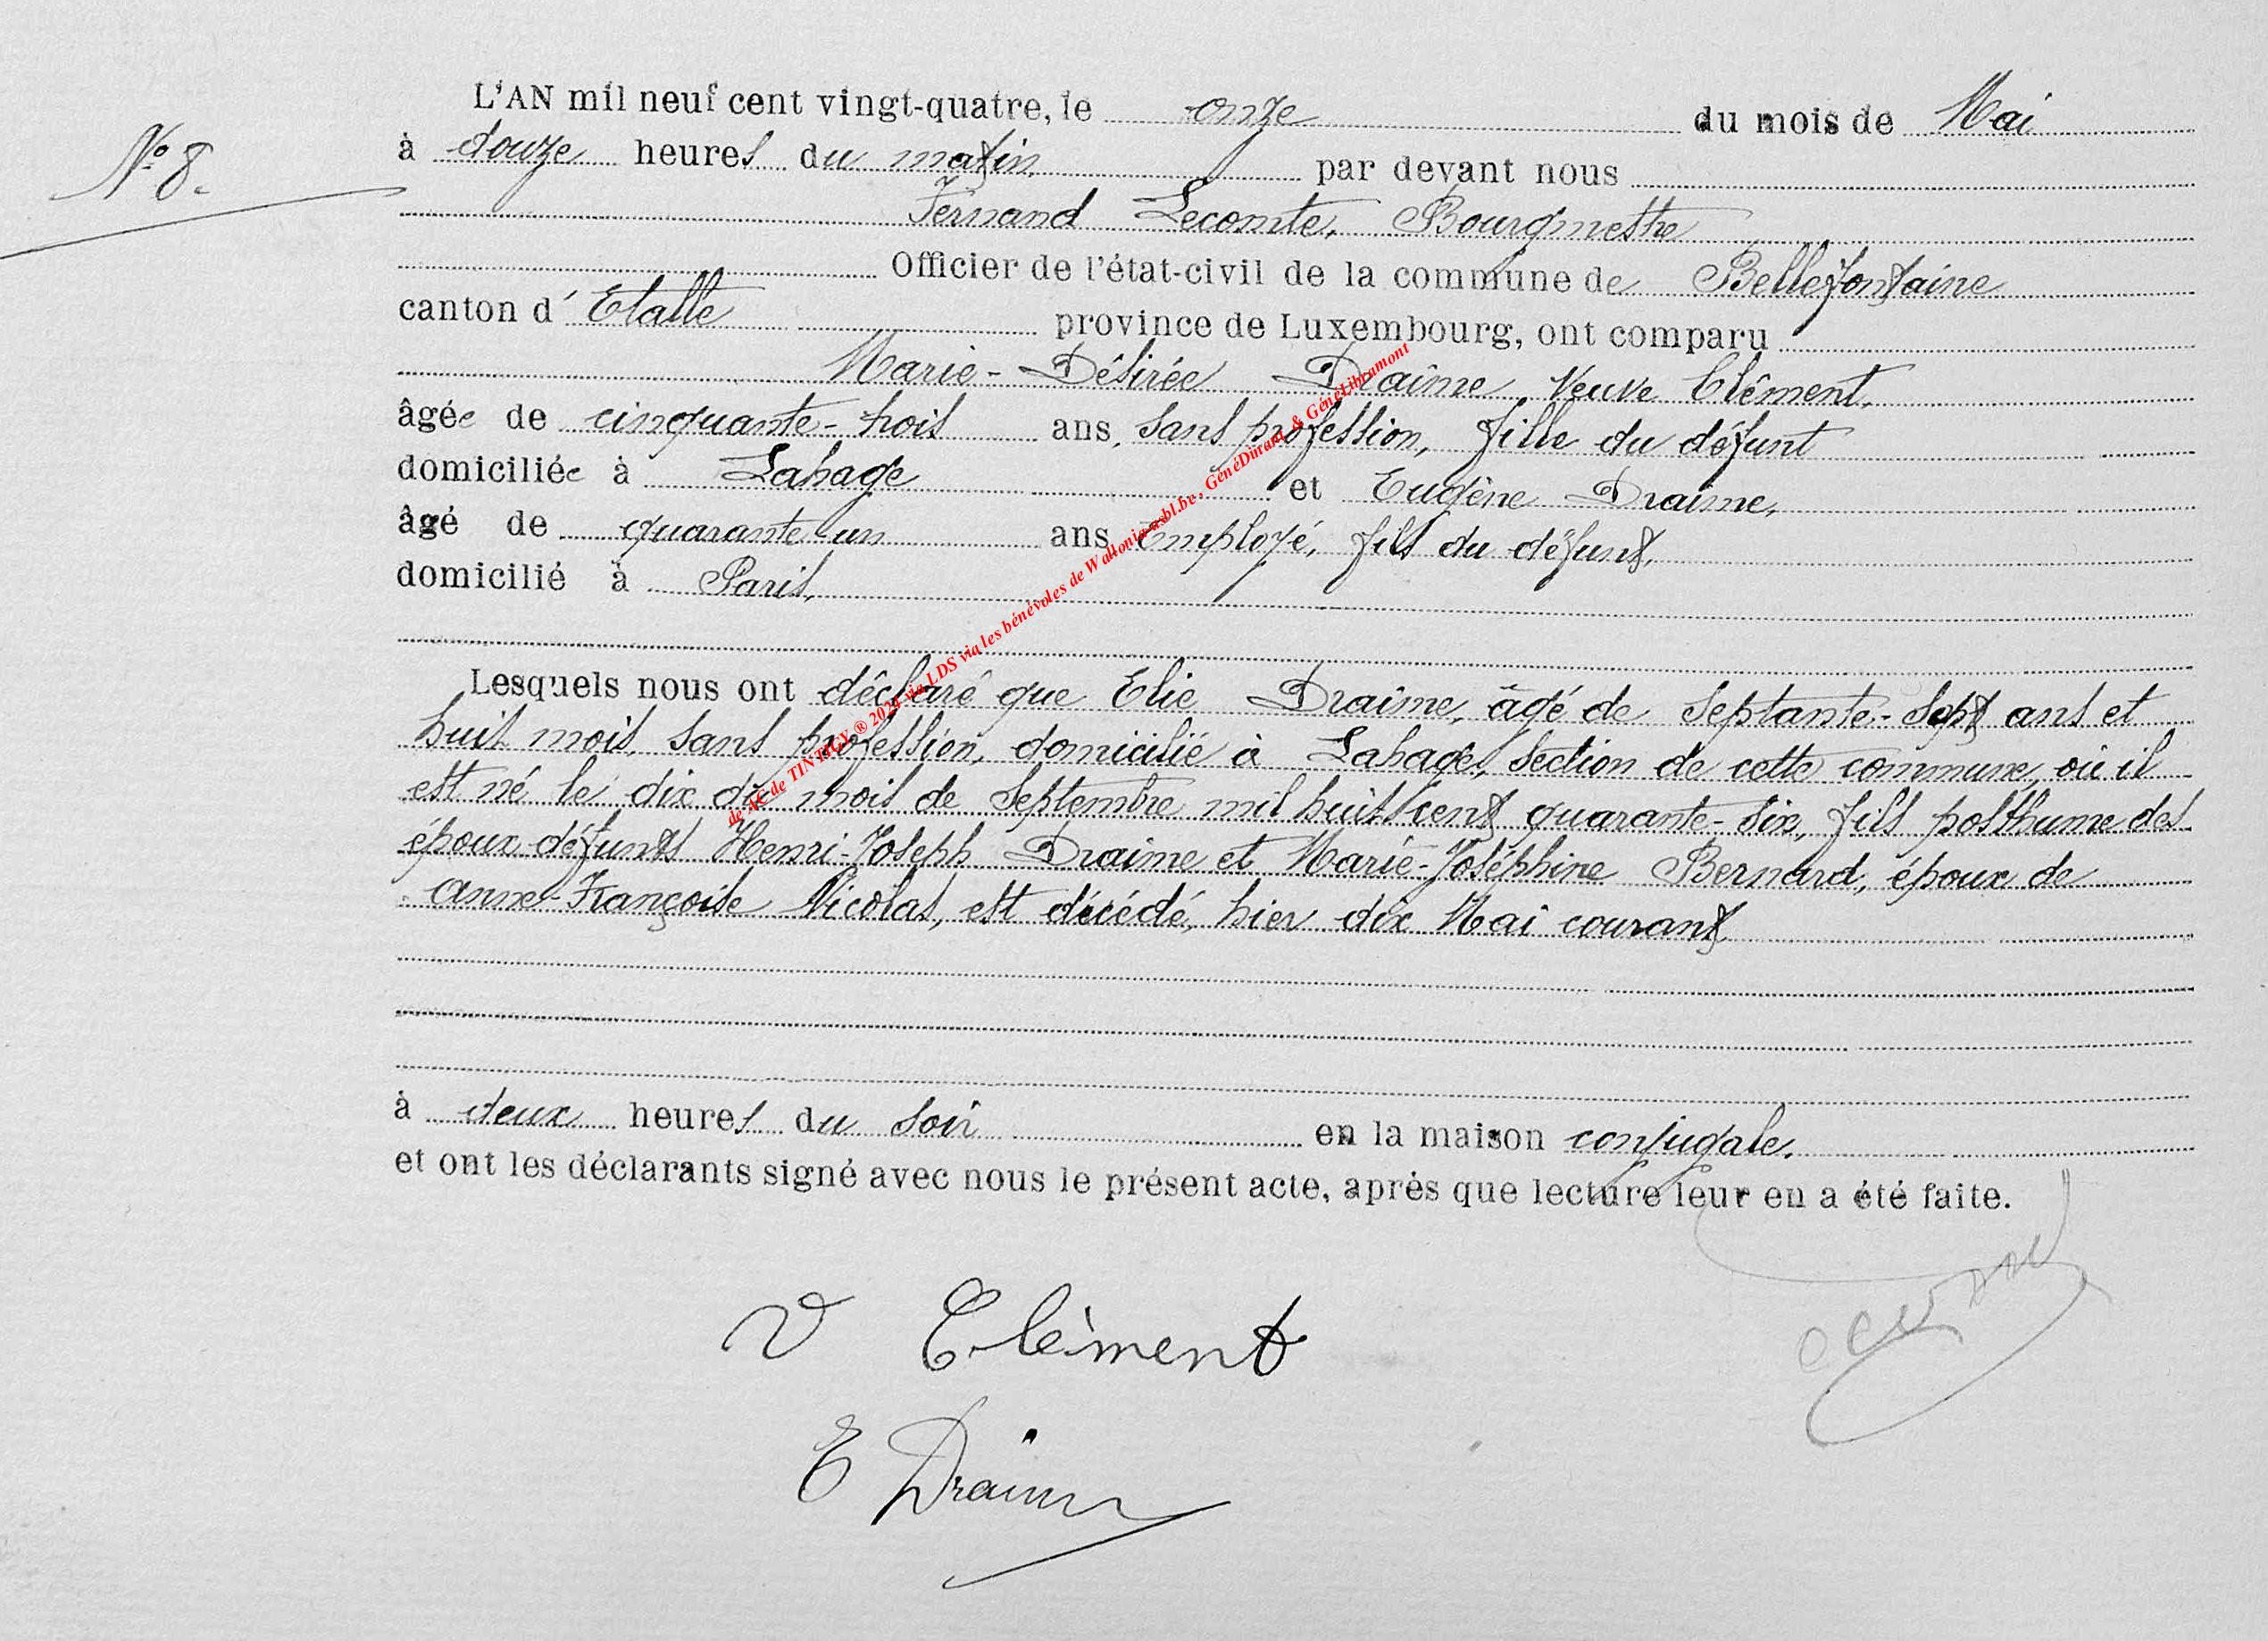 N° 8.
L'AN mil neuf cent vingt-quatre, le onze du mois de Mai
à douze heures du matin par devant nous
Fernand Lecomte, Bourgmestre
Officier de l'état-civil de la commune de Bellefontaine
canton d'Etalle province de Luxembourg, ont comparu
Marie-Désirée Draime, Veuve Clément,
âgée de cinquante-trois ans, sans profession, fille du défunt
domiciliée à Lahage et Eugène Draime,
âgé de quarante un ans Employé, fils du défunt,
domicilié à Paris,
Lesquels nous ont déclaré que Elie Draime, âgé de septante-sept ans et
huit mois, sans profession, domicilié à Lahage, section de cette commune, où il
est né le dix du mois de Septembre mil huit cent quarante-six, fils posthume des
époux défunts Henri-Joseph Draime et Marie-Joséphine Bernard, époux de
Anne-Françoise Nicolas, est décédé, hier dix Mai courant
à deux heures du soir en la maison conjugale.
et ont les déclarants signé avec nous le présent acte, après que lecture leur en a été faite.
V Clément
E Draime
de AC de TINTIGY ® 2024 via LDS via les bénévoles de Wallonia-asbl.be, GénéDinant & GénéLibramont